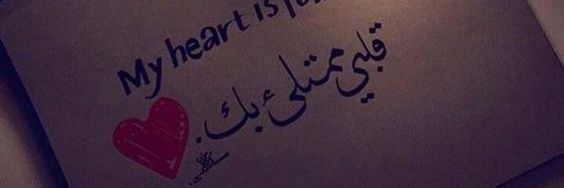 My heart is
قلبي ممتلئ بك.